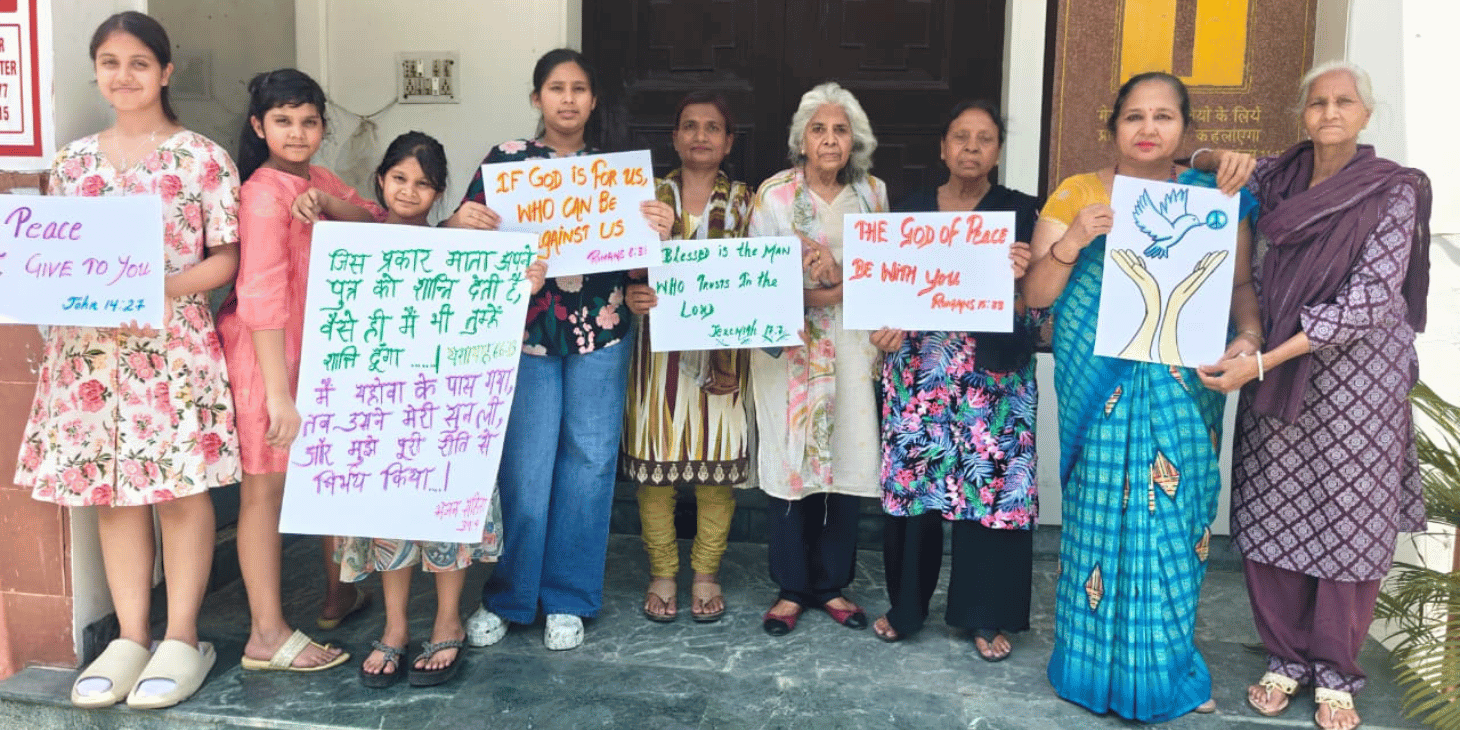 R
TER
77
15
Peace
I GIVE TO YOU
John 14:27
जिस प्रकार माता अपने
पुत्र को शान्ति देती है,
वैसे ही मैं भी तुम्हें
शान्ति दूँगा ....!
मैं यहोवा के पास गया,
तब उसने मेरी सुन ली,
और मुझे पूरी रीति से
निर्भय किया..!
भजन संहिता
34:4
IF GOD IS FOR US,
WHO CAN BE
AGAINST US
ROMANS 8:31
Blessed is the Man
WHO Trusts In the
Lord
Jeremiah 17:7
THE GOD OF Peace
BE WITH YOU
ROMANS 15:33
के लिये
कहलाएगा